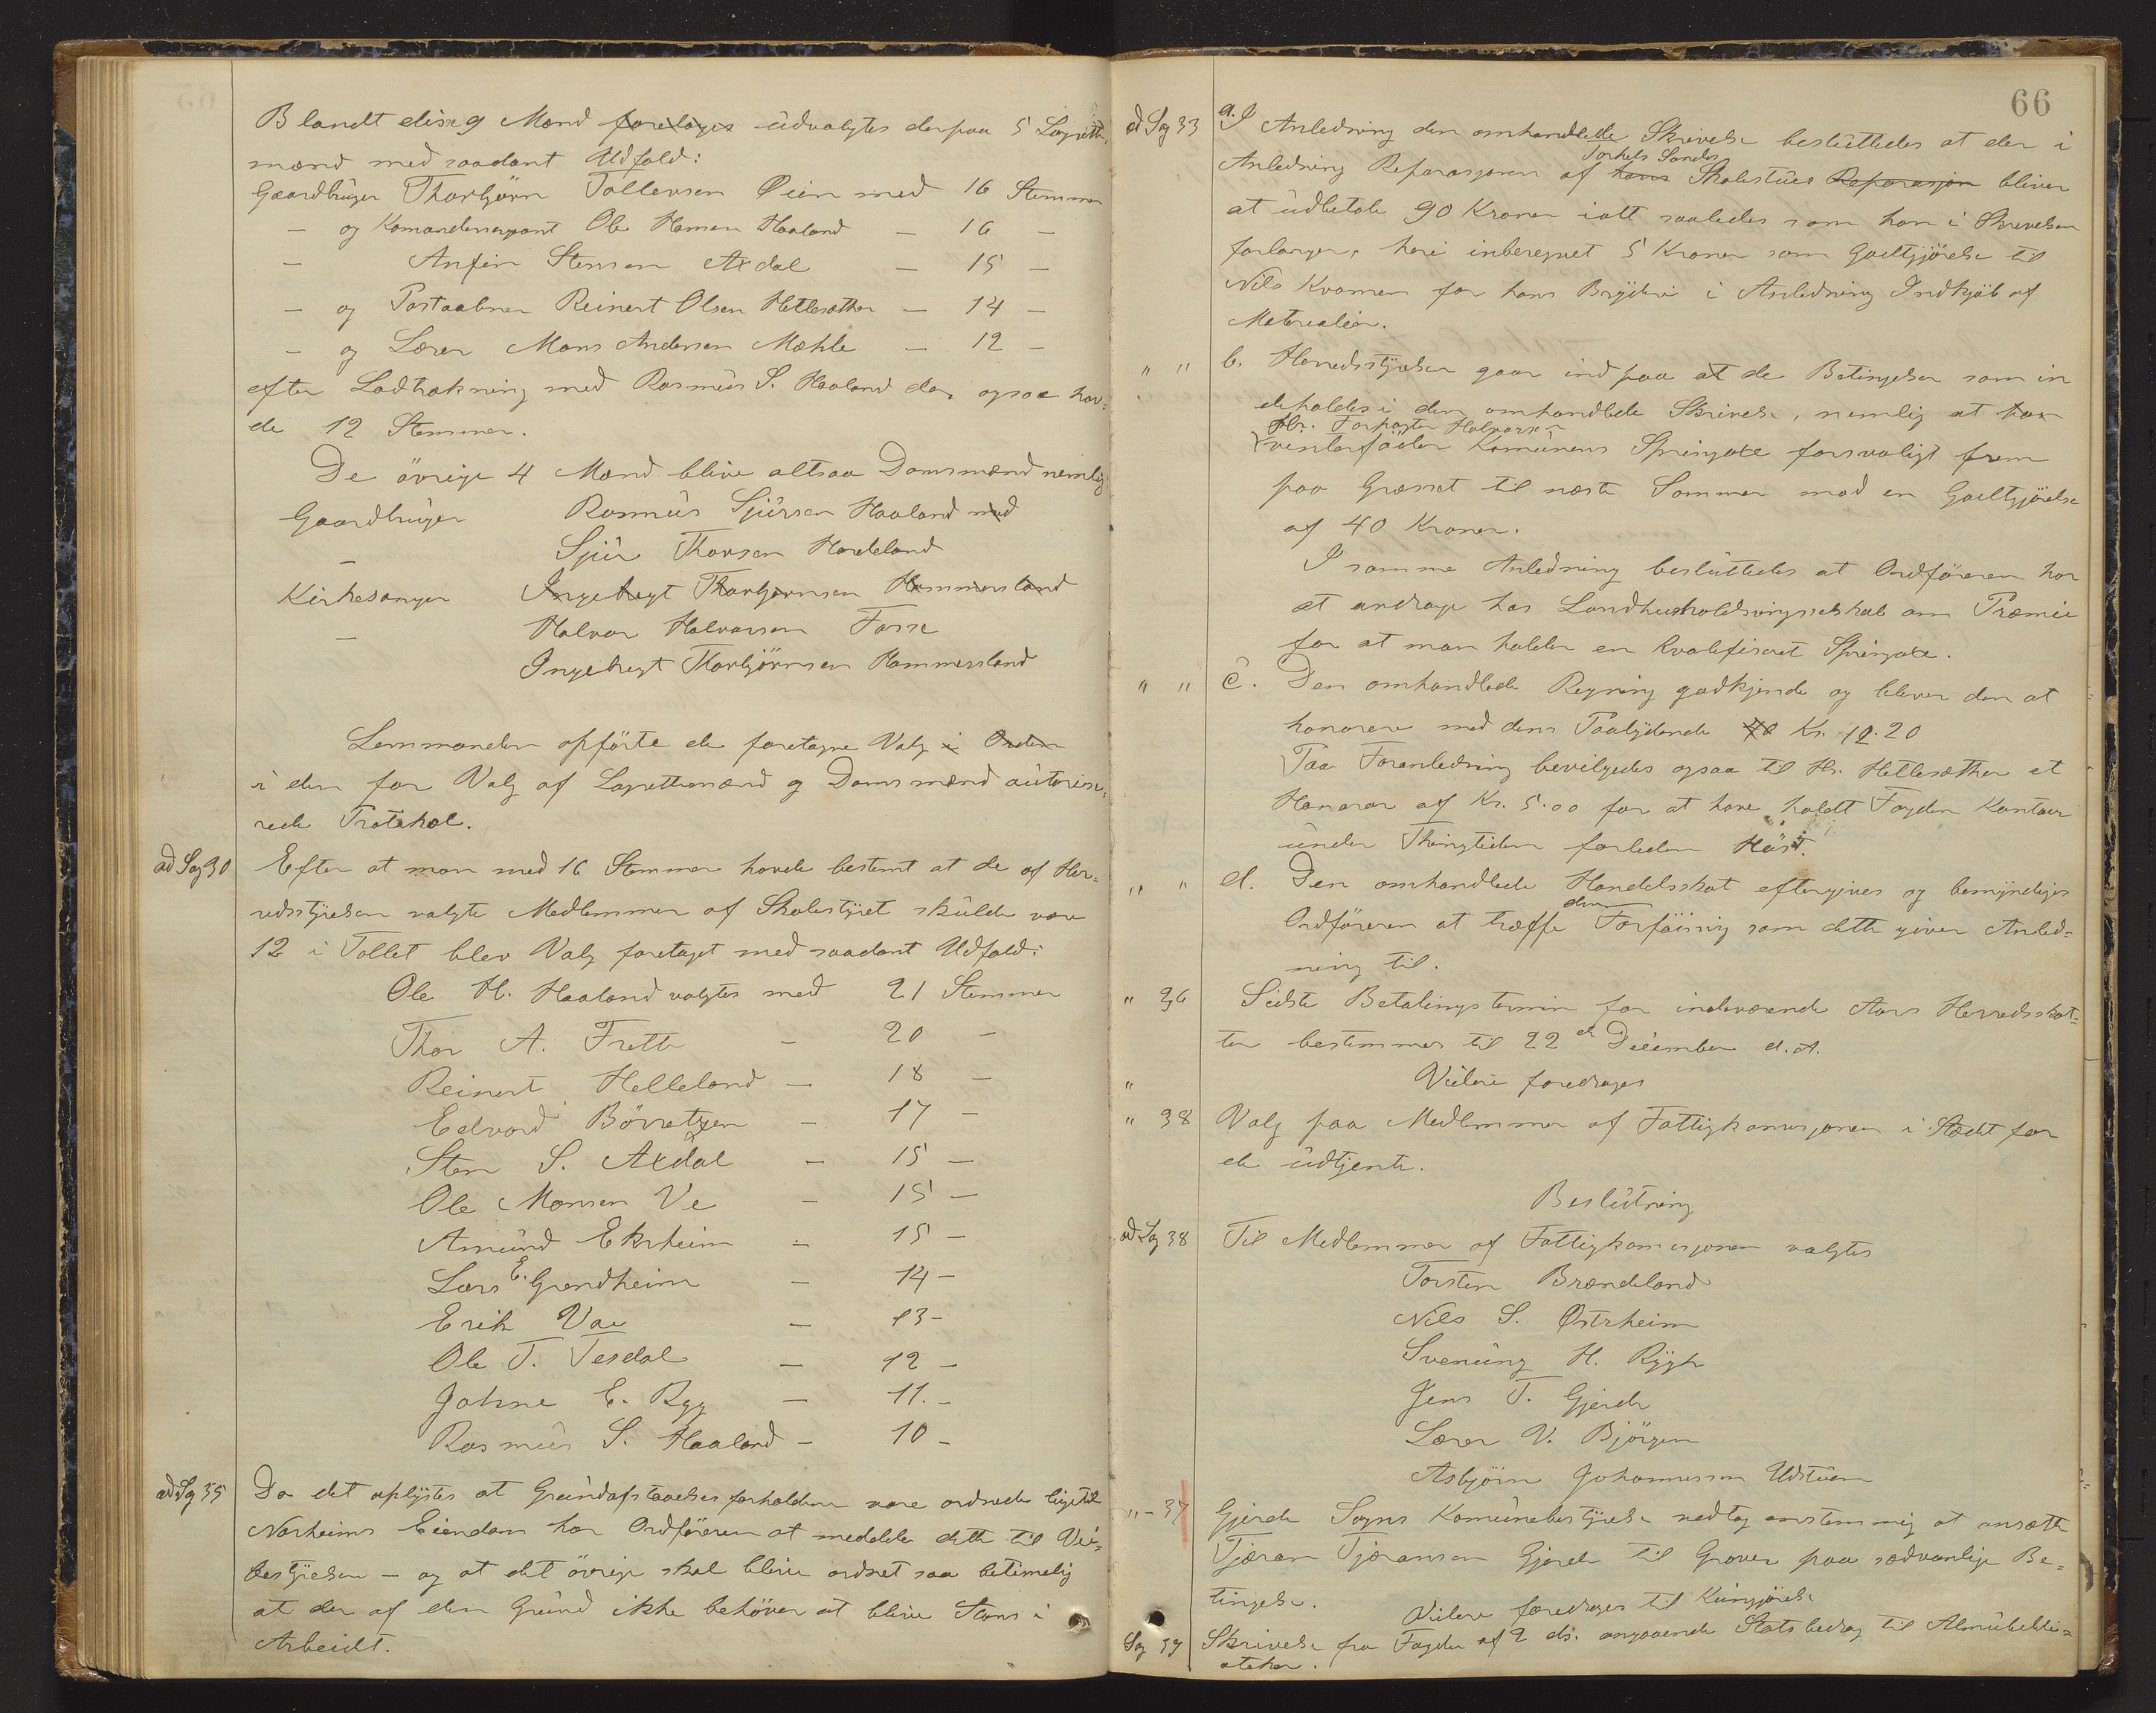 Blandt disse 9 Mænd foretoges udvalgtes derpaa 5 Lagrettes-
mænd med saadant Udfald:
Gaardbruger Thorbjörn Tollevsen Öien med 16 Stemmer
— og Komandersergeant Ole Hansen Haaland — 16 —
— Anfin Stensen Axdal — 15 —
— og Postaabner Reinert Olsen Hettesæther — 14 —
— og Lærer Mons Andersen Mæhle — 12 —
efter Lodtrækning med Rasmus S. Haaland der ogsaa hav-
de 12 Stemmer.
De övrige 4 Mænd blive altsaa Domsmænd nemlig:
Gaardbruger Rasmus Sjursen Haaland med
— Sjur Thorsen Hardeland
Kirkesanger Ingebregt Thorbjørnsen Hammersland
— Halvor Halvorsen Fosse
Ingebregt Thorbjörnsen Hammersland
Lensmanden opförte de foretagne Valg i Orden
i den for Valg af Lagrettemænd og Domsmænd autorise-
rede Protokol.
ad Sag 30 Efter at man med 16 Stemmer havde bestemt at de af Her-
redsstyrelsen valgte Medlemmer af Skolestyret skulde være
12 i Tallet blev Valg foretaget med saadant Udfald:
Ole H. Haaland valgtes med 21 Stemmer
Thor A. Frette — 20 —
Reinert Helleland — 18 —
Edvard Börretzen — 17 —
Sten S. Axdal — 15 —
Ole Monsen Ve — 15 —
Amund Ekrheim — 15 —
Lars E. Grindheim — 14 —
Erik Vae — 13 —
Ole T. Tesdal — 12 —
Johne E. Ryg — 11. —
Rasmus S. Haaland — 10 —
ad Sag 35 Da det oplystes at Grundafstaaelsesforholdene vare ordnede ligetil
Norheims Eiendom har Ordföreren at meddele dette til Vei-
bestyrelsen — og at det övrige skal blive ordnet saa betimelig
at der af den Grund ikke behöver at blive Stans i
Arbeidet.
66
ad Sag 33 a. I Anledning den omhandlede Skrivelse besluttedes at der i
Torkels Sandes
Anledning Reparasjonen af hans Skolestue Reparasjon bliver
at udbetale 90 Kroner ialt saaledes som han i Skrivelsen
forlanger, heri inberegnet 5 Kroner som Godtgjörelse til
Nils Kvamen for hans Bryderi i Anledning Indkjöb af
Materialier.
" " b. Herredsstyrelsen gaar ind paa at de Betingelser som in
deholdes i den omhandlede Skrivelse, nemlig at han
Hr. Forpagter Halvorsen
vinterföder Komunens Springoxe forsvaligt frem
paa Græsset til næste Sommer mod en Godtgjörelse
af 40 Kroner.
I samme Anledning besluttedes at Ordföreren har
at andrage hos Landhusholdningsselskab om Præmie
for at man holder en kvalifiseret Springoxe.
" " c. Den omhandlede Regning godkjende og bliver den at
honorere med dens Paalydende 40 Kr. 12.20
Paa Foranledning bevilgedes ogsaa til Hr. Hettesæther et
Honorar af Kr. 5.00 for at have holdt Fogden Kontor
under Thingtiden forleden Höst.
" " d. Den omhandlede Handelsskat eftergives og bemyndiges
den
Ordföreren at træffe Forföining som dette giver Anled-
ning til.
" 36 Sidste Betalingstermin for indeværende Aars Herredsskat-
ter bestemmes til 22de December d. A.
" Videre foredroges
" 38 Valg paa Medlemmer af Fattigkomisjonen i Stedet for
de udtjente.
Beslutning
ad Sag 38 Til Medlemmer af Fattigkomisjonen valgtes
Torsten Brændeland
Nils S. Østrheim
Svenung H. Rygh
Jens T. Gjerde
Lærer V. Bjørgen
Asbjörn Johannessen Udstuen
" — 37 Gjerde Sogns Komunebestyrelse vedtog enstemmig at ansætte
Tjæran Tjæransen Gjerde til Graver paa sædvanlige Be-
tingelse.
Videre foredroges til Kungjörelse
Sag 39 Skrivelse fra Fogden af 2 ds. angaaende Statsbedrag til Almubibli-
oteker.